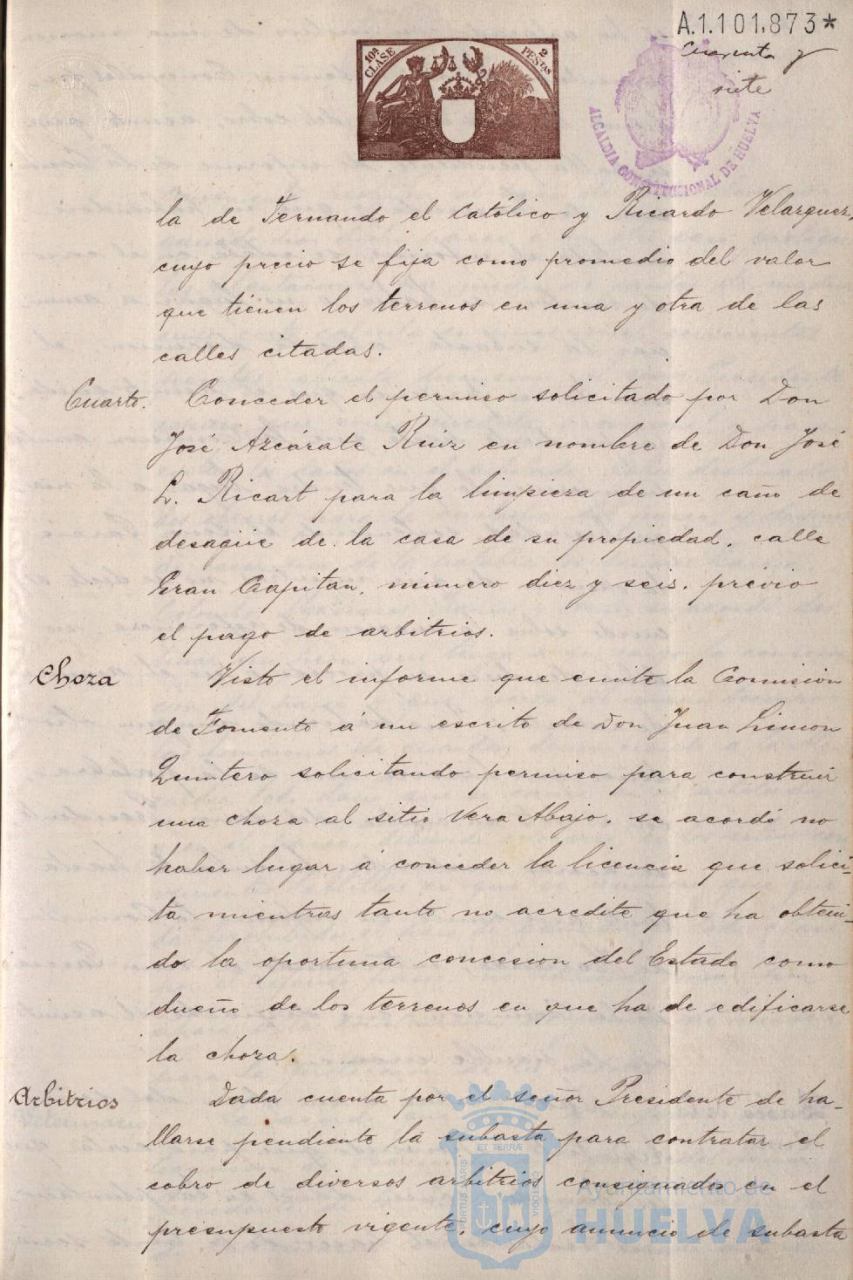 A.1.101.873*
Cuarenta y
siete
10ª CLASE 2 PESETAS
ALCALDIA CONSTITUCIONAL DE HUELVA
la de Fernando el Católico y Ricardo Velazquez,
cuyo precio se fija como promedio del valor
que tienen los terrenos en una y otra de las
calles citadas.
Cuarto. Conceder el permiso solicitado por Don
José Azcárate Ruiz en nombre de Don José
L. Ricart para la limpieza de un caño de
desagüe de la casa de su propiedad, calle
Gran Capitan, número diez y seis, previo
el pago de arbitrios.
Choza Visto el informe que emite la Comisión
de Fomento á un escrito de Don Juan Limon
Quintero solicitando permiso para construir
una choza al sitio Vera Abajo, se acordó no
haber lugar á conceder la licencia que solici-
ta mientras tanto no acredite que ha obteni-
do la oportuna concesion del Estado como
dueño de los terrenos en que ha de edificarse
la choza.
Arbitrios Dada cuenta por el señor Presidente de ha-
llarse pendiente la subasta para contratar el
cobro de diversos arbitrios consignados en el
presupuesto vigente, cuyo anuncio de subasta
Ayuntamiento de
HUELVA